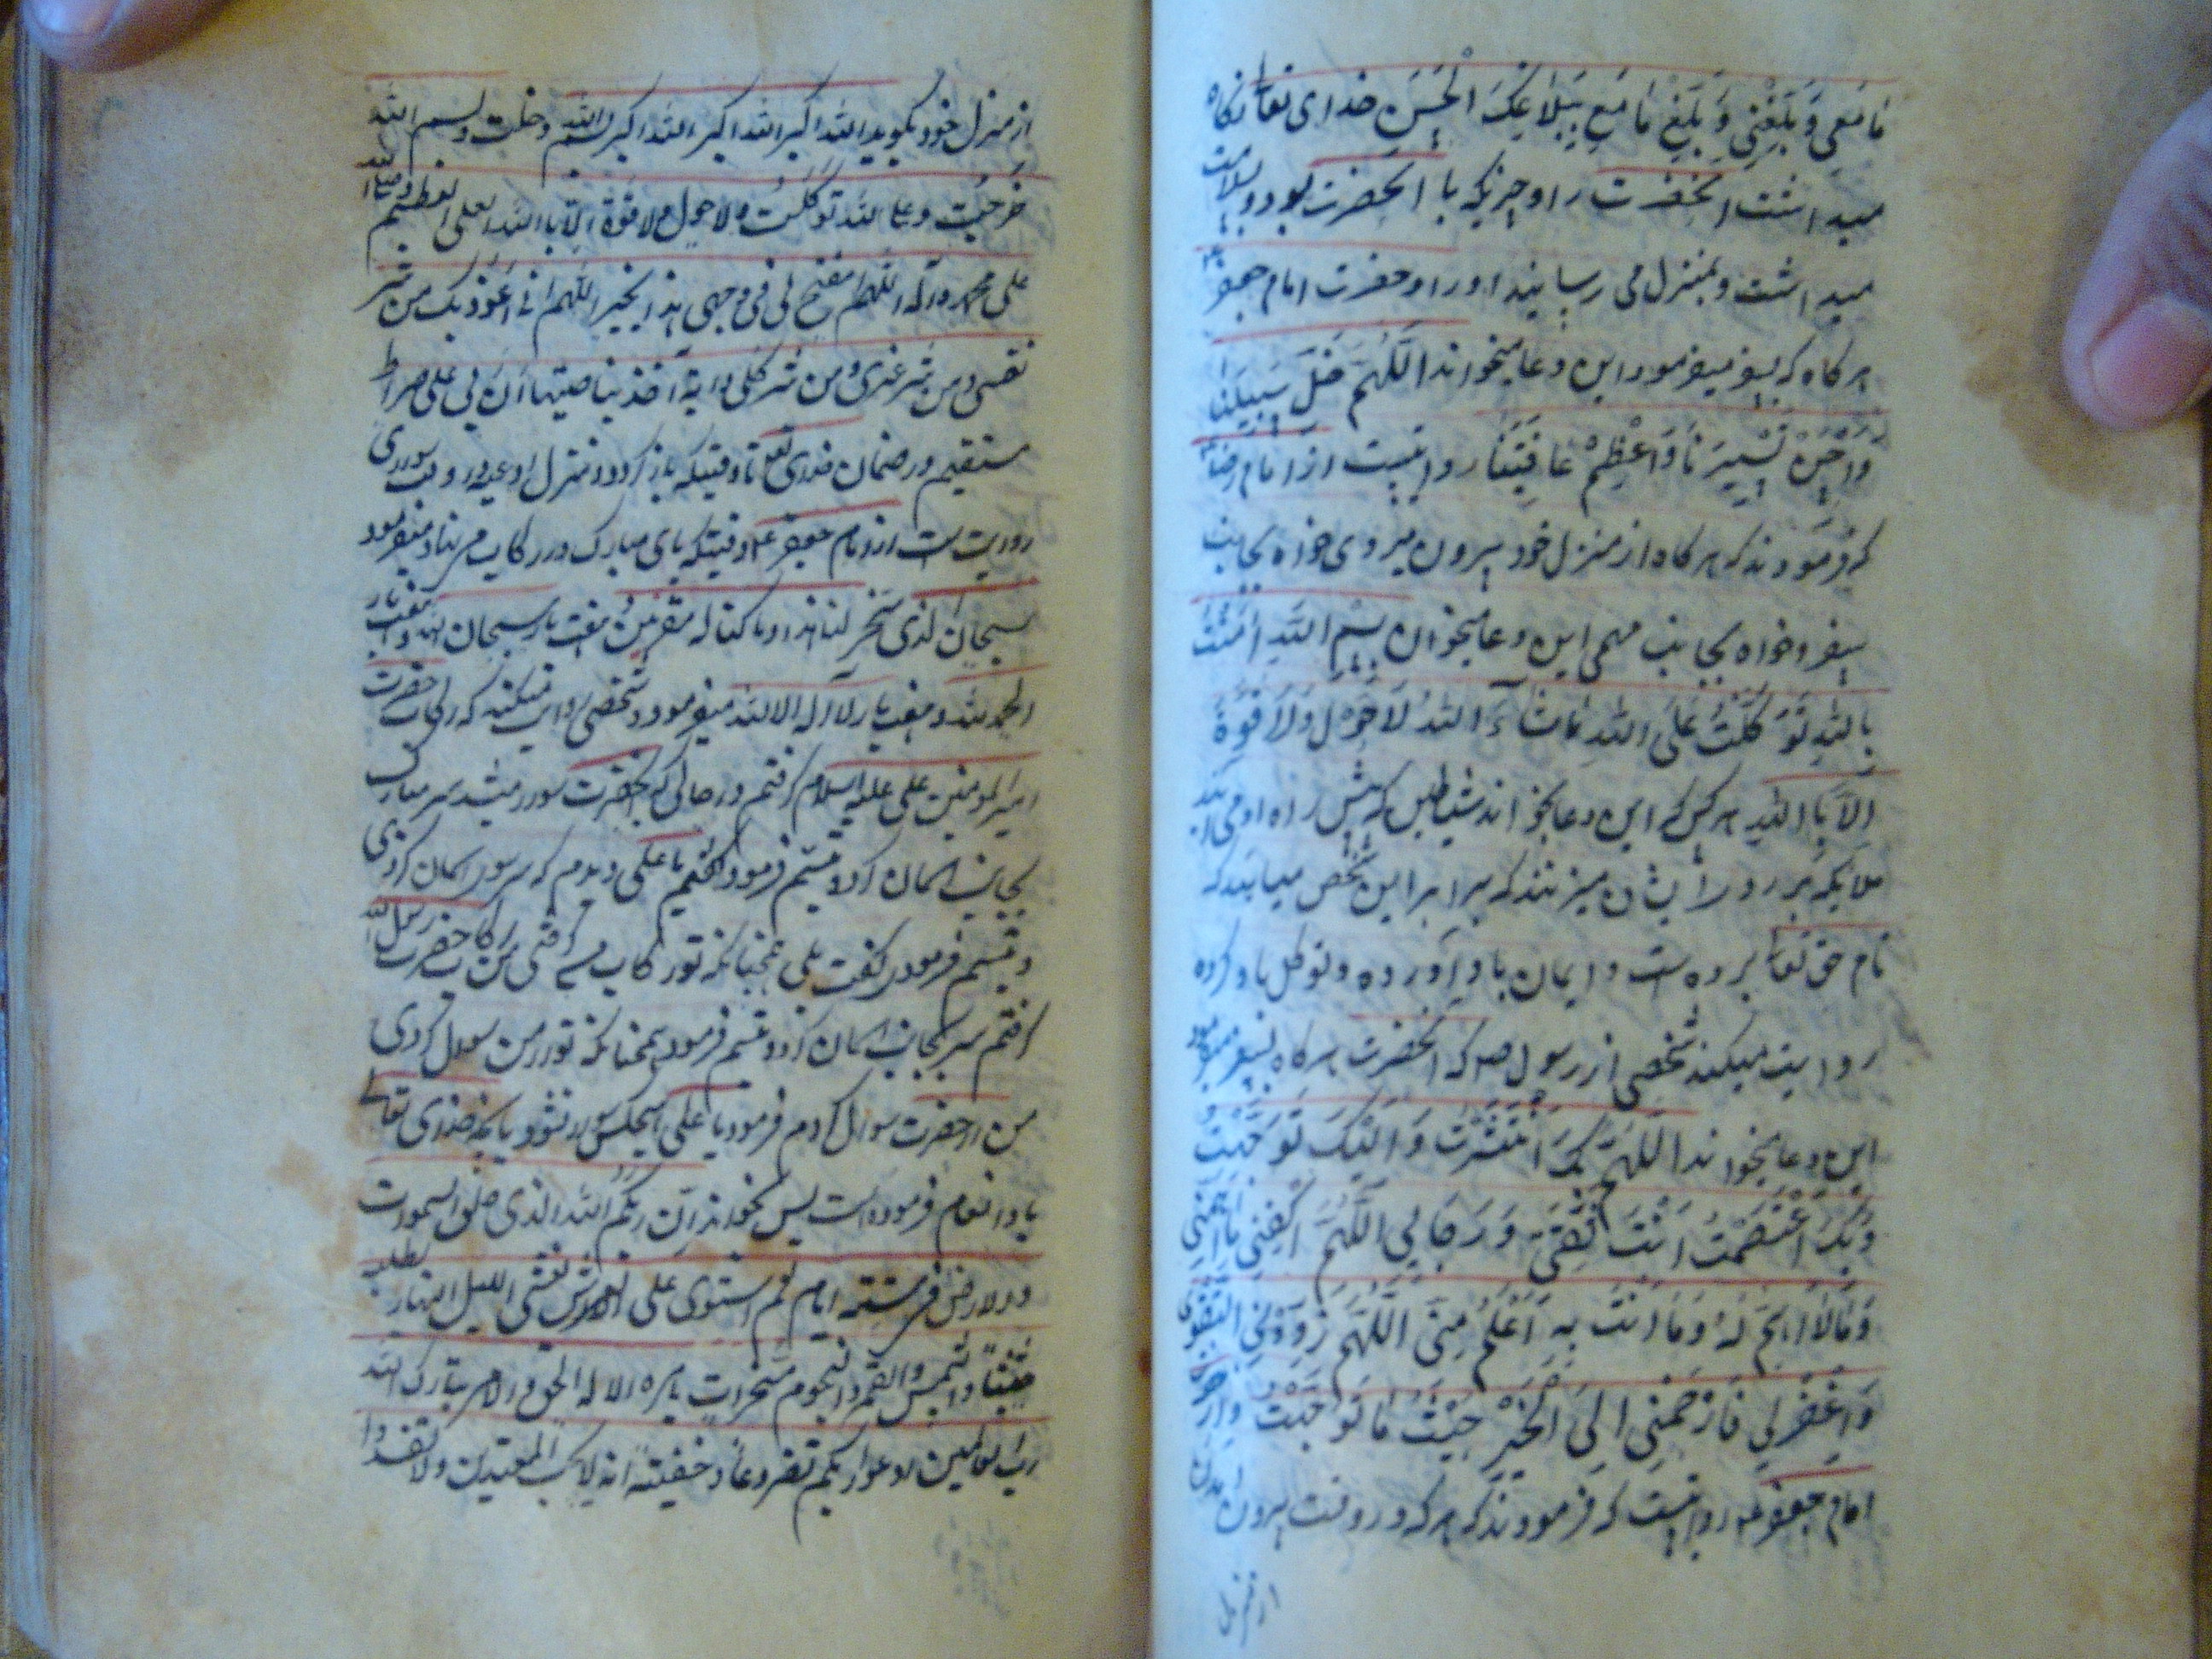 مَا مَعِي وَبَلِّغْنِي وَبَلِّغْ مَا مَعِي بِبَلَاغِكَ الْحَسَنِ خدای تعالی نکاه
میداشت انحضرت را و چیزیکه با انحضرت بود و بسلامت
میداشت و بمنزل می رسانید او را و حضرت امام جعفر
هر کاه که بسفر میفرمود این دعا میخواند اللَّهُمَّ خَلِّ سَبِيلَنَا
وَاَحْسِنْ تَسْيِيرَنَا وَاَعْظِمْ عَافِيَتَنَا روایتست از امام رضا
که فرمودند که هر کاه از منزل خود بیرون میروی خواه بجانب
سفر و خواه بجانب مهمی این دعا بخوان بِسْمِ اللَّهِ آمَنْتُ
بِاللَّهِ تَوَكَّلْتُ عَلَى اللَّهِ مَا شَاءَ اللَّهُ لَا حَوْلَ وَلَا قُوَّةَ
اِلَّا بِاللَّهِ هر کس که این دعا بخواند شیاطین که پیش راه او می ایند
ملایکه بر روی ایشان میزنند که برابر این شخص میایید که
نام حق تعالی برده است و ایمان باو آورده و توکل باو کرده
روایت میکند شخصی از رسول ص که انحضرت هر کاه بسفر میفرمود
این دعا بخواند اَللَّهُمَّ بِكَ انْتَشَرْتُ وَاِلَيْكَ تَوَجَّهْتُ
وَبِكَ اعْتَصَمْتُ اَنْتَ ثِقَتِي وَرَجَائِي اَللَّهُمَّ اكْفِنِي مَا اَهَمَّنِي
وَمَا لَا اَهْتَمُّ لَهُ وَمَا اَنْتَ بِهِ اَعْلَمُ مِنِّي اَللَّهُمَّ زَوِّدْنِي التَّقْوَى
وَاغْفِرْ لِي اِلَى الْخَيْرِ حَيْثُ مَا تَوَجَّهْتُ
امام جعفر روایتست که فرمودند که هر که در وقت بیرون
از منزل
از منزل خود بکوید الله اکبر الله اکبر الله اکبر بسم الله دخلت و بسم الله
خرجت و علی الله توکلت و لا حول و لا قوة الا بالله العلی العظیم
علی محمد و آله اللهم افتح لی فی وجهی هذا بخیر اللهم انی اعوذ بک من شر
نفسی و من شر غیری و من شر کل دابة آخذ بناصیتها ان ربی علی صراط
مستقیم در ضمان خدای تع تا وقتیکه باز کردد بمنزل
روایت است از امام جعفر ع وقتیکه پای مبارک در رکاب می نهاد میفرمود
سبحان الذی سخر لنا هذا و ما کنا له مقرنین هفت بار سبحان الله و هفت بار
الحمد لله و هفت بار لا اله الا الله میفرمود و شخصی روایت میکند که رکاب حضرت
امیر المومنین علی علیه السلام کرفتم در حالی که انحضرت سوار میشد سر مبارک
بجانب اسمان کرد و تبسم فرمود کفتم یا علی دیدم که سر سوی اسمان کردی
و تبسم فرمودی کفت بلی همچنانکه تو رکاب من کرفتی من رکاب حضرت رسول الله
کرفتم سر بجانب اسمان کرد و تبسم فرمود همچنانکه تو از من سوال کردی
من از حضرت سوال کردم فرمود یا علی هیچکس سوار نشود بانچه خدای تعالی
باو انعام فرموده است پس بخواند ان ربکم الله الذی خلق السموات
والارض فی ستة ایام ثم استوی علی العرش یغشی اللیل النهار یطلبه
حثیثا والشمس والقمر والنجوم مسخرات بامره الا له الخلق والامر تبارک الله
رب العالمین ادعوا ربکم تضرعا و خفیة انه لا یحب المعتدین ولا تفسدوا